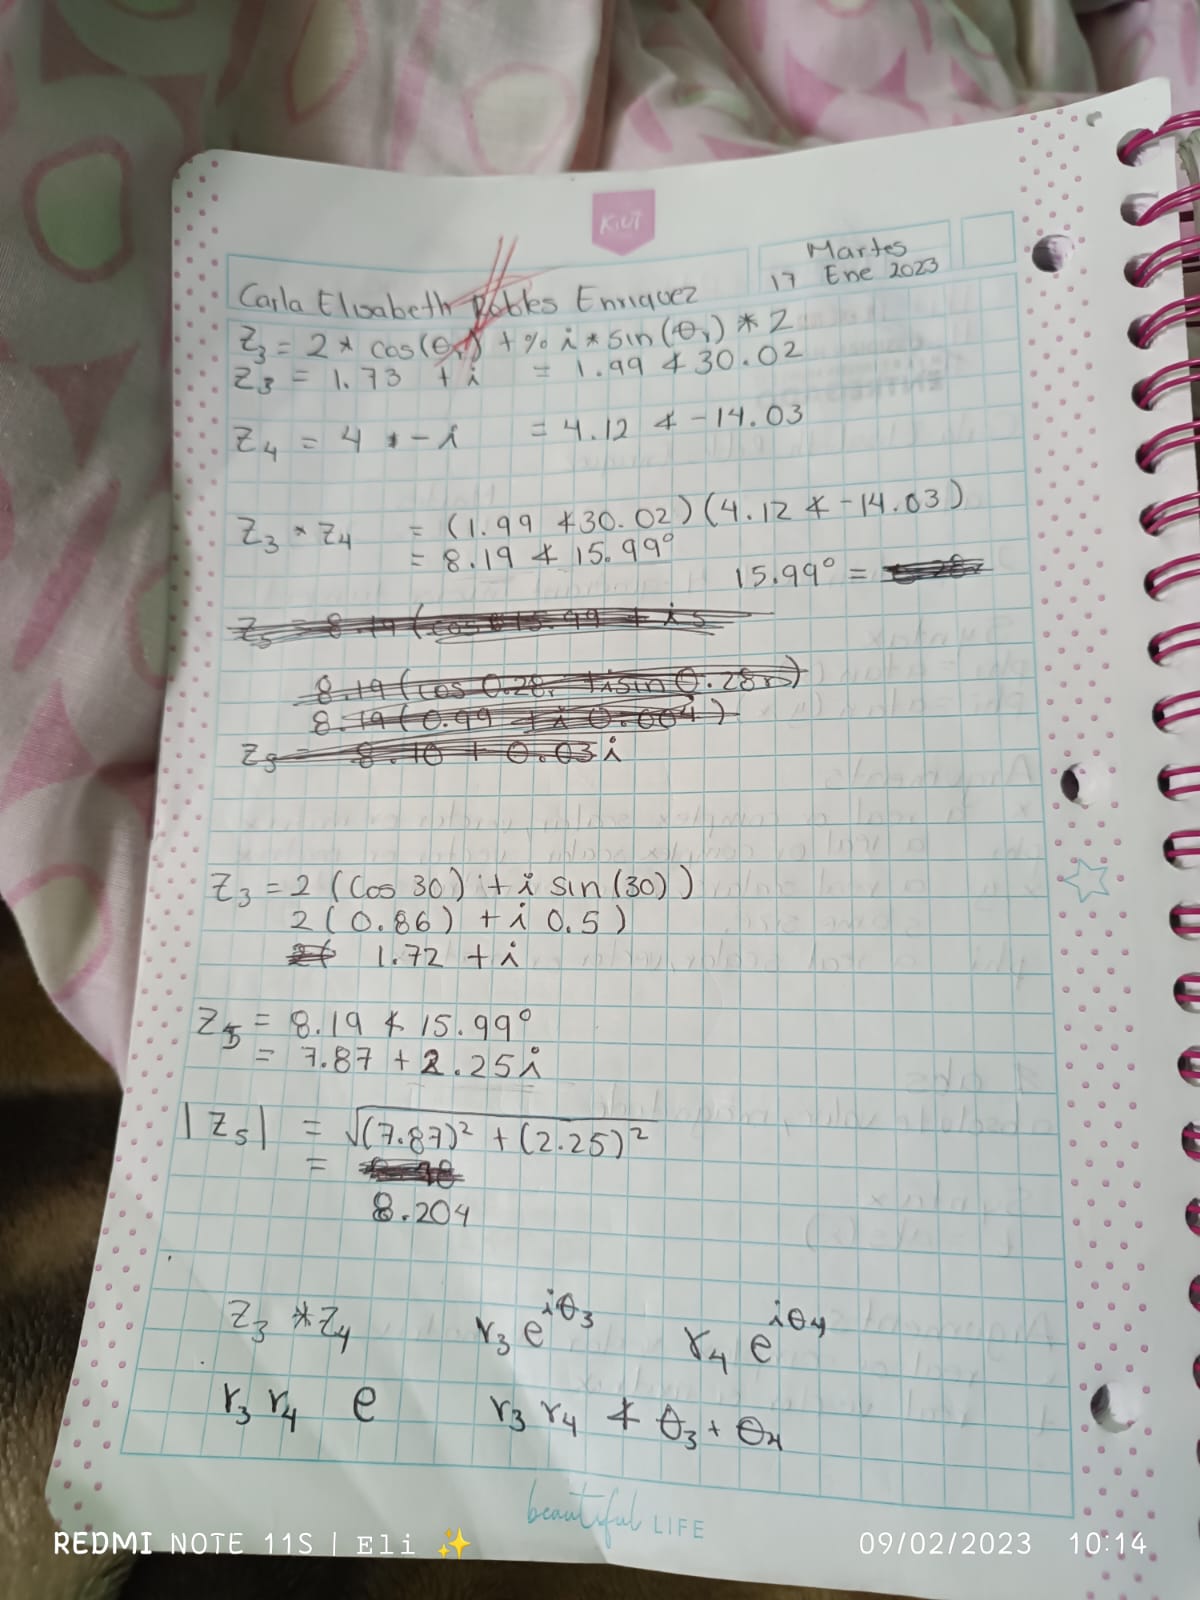 KIUT
Martes
17 Ene 2023
Carla Elisabeth Robles Enriquez
Z₃ = 2 * cos(θᵣ) + % i * sin(θᵣ) * 2
Z₃ = 1.73 + i = 1.99 ∡ 30.02
Z₄ = 4 - i = 4.12 ∡ -14.03
Z₃ * Z₄ = (1.99 ∡ 30.02)(4.12 ∡ -14.03)
= 8.19 ∡ 15.99°
15.99° =
Z₅ = 8.19 (cos 15.99 + i s
8.19 (cos 0.28r + i sin 0.28r)
8.19 (0.99 + i 0.004)
Z₅ = 8.10 + 0.03 i
Z₃ = 2 (Cos 30) + i sin (30))
2 (0.86) + i 0.5)
1.72 + i
Z₅ = 8.19 ∡ 15.99°
= 7.87 + 2.25 i
|Z₅| = √(7.87)² + (2.25)²
=
8.204
Z₃ * Z₄ r₃ e^iθ₃ r₄ e^iθ₄
r₃ r₄ e r₃ r₄ ∡ θ₃ + θ₄
beautiful LIFE
REDMI NOTE 11S | Eli ✨ 09/02/2023 10:14